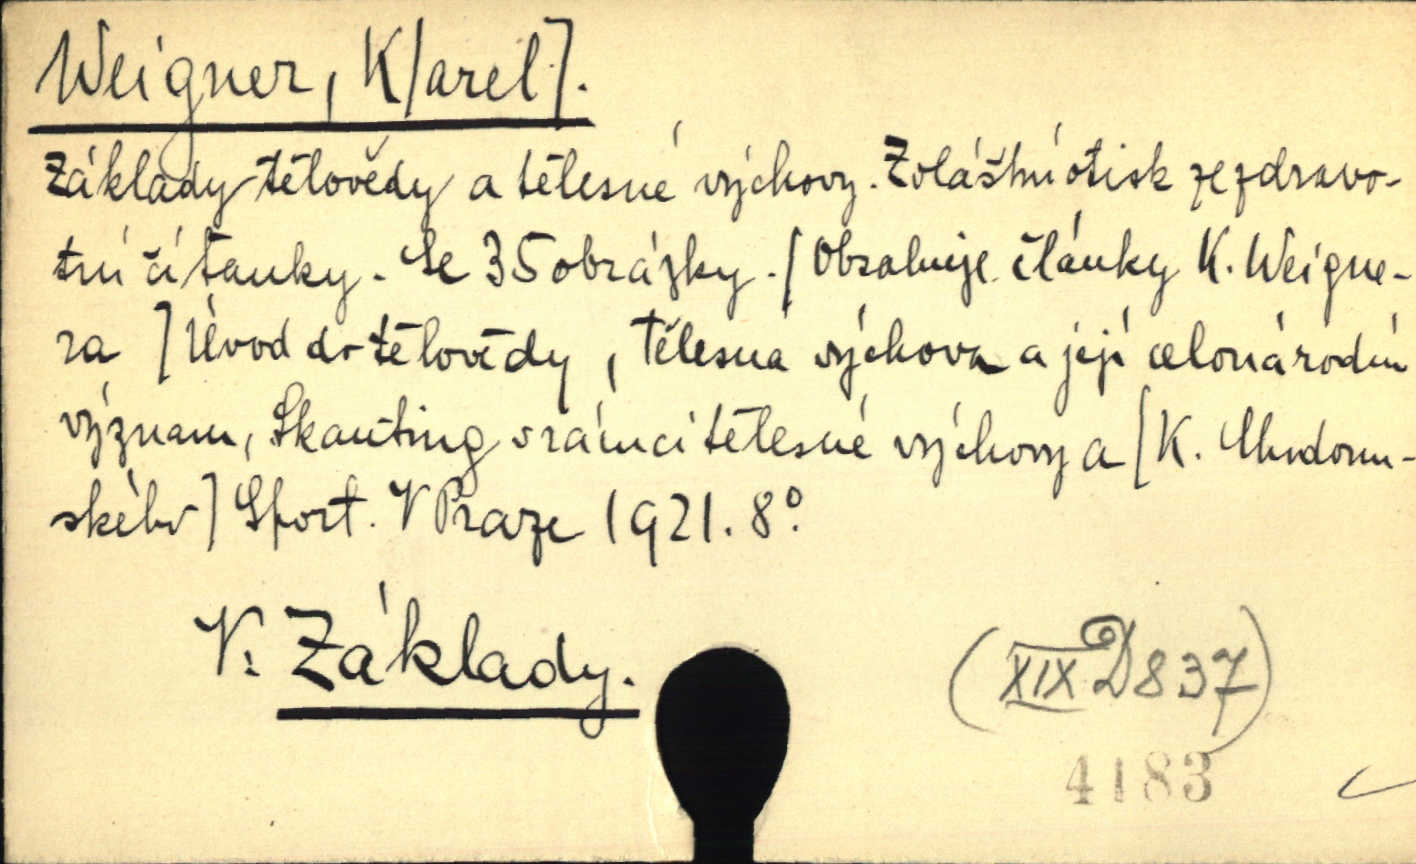 Weigner, K[arel].
Základy tělovědy a tělesné výchovy. Zvláštní otisk ze zdravo-
tní čítanky. Se 35 obrázky. [Obsahuje články K. Weigne-
ra] Úvod do tělovědy, Tělesna výchova a její celonárodní
význam, Skauting v rámci tělesné výchovy a [K.
ského] Sport. V Praze 1921. 8°.
V. Základy.
(XIX D 837)
4183